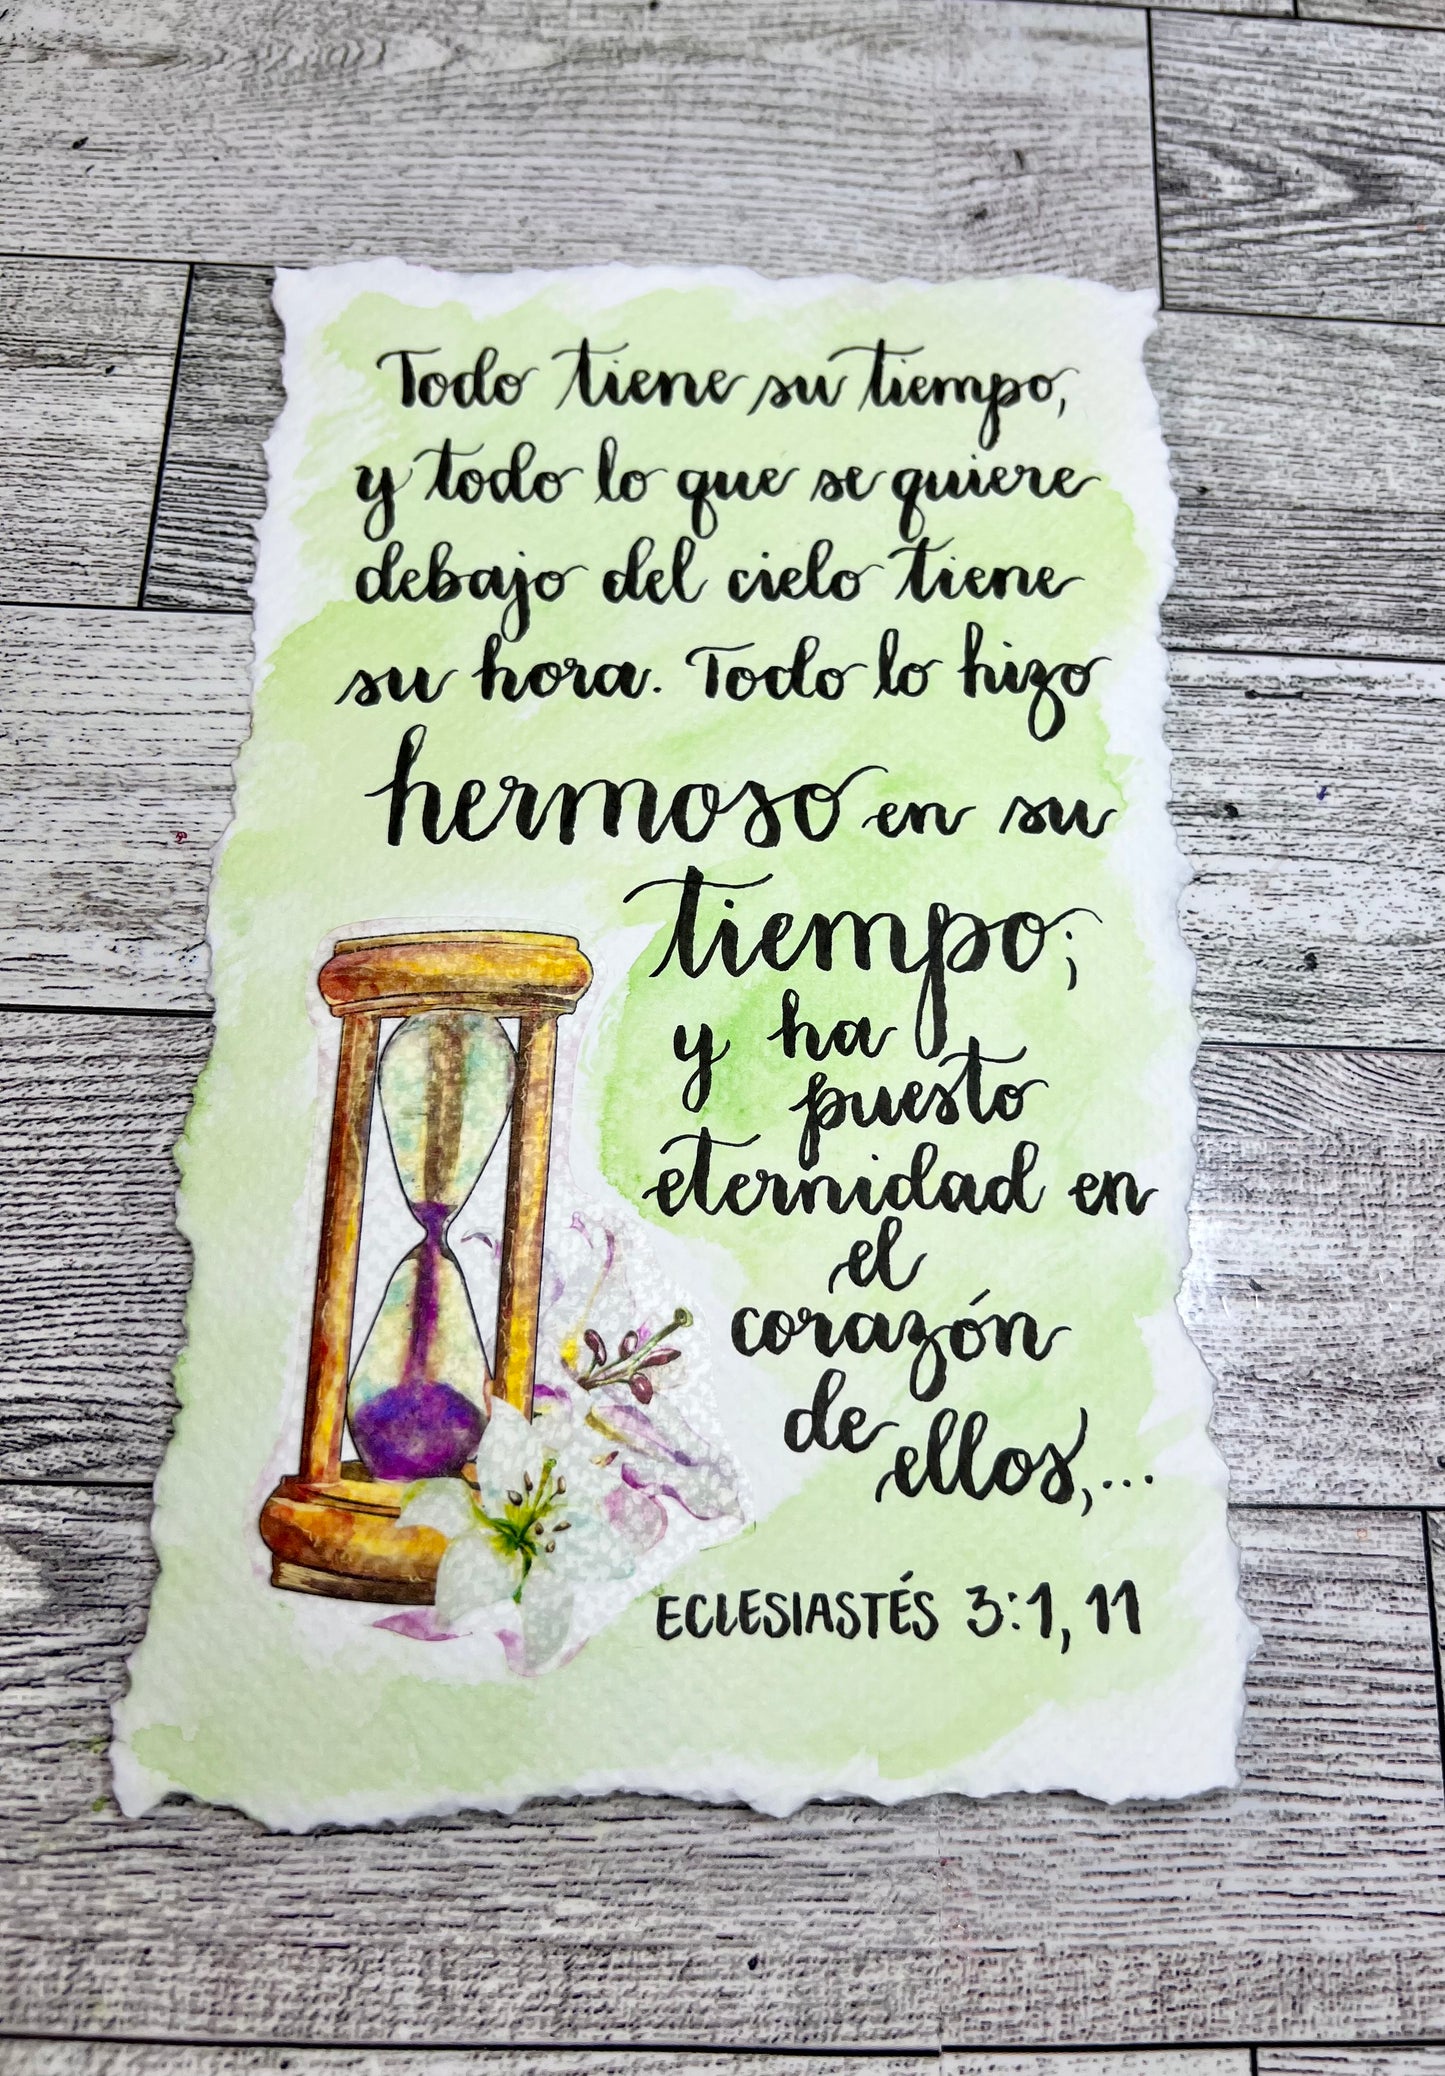 Todo tiene su tiempo,
y todo lo que se quiere
debajo del cielo tiene
su hora. Todo lo hizo
hermoso en su
tiempo;
y ha
puesto
eternidad en
el
corazón
de
ellos,...
ECLESIASTÉS 3:1, 11